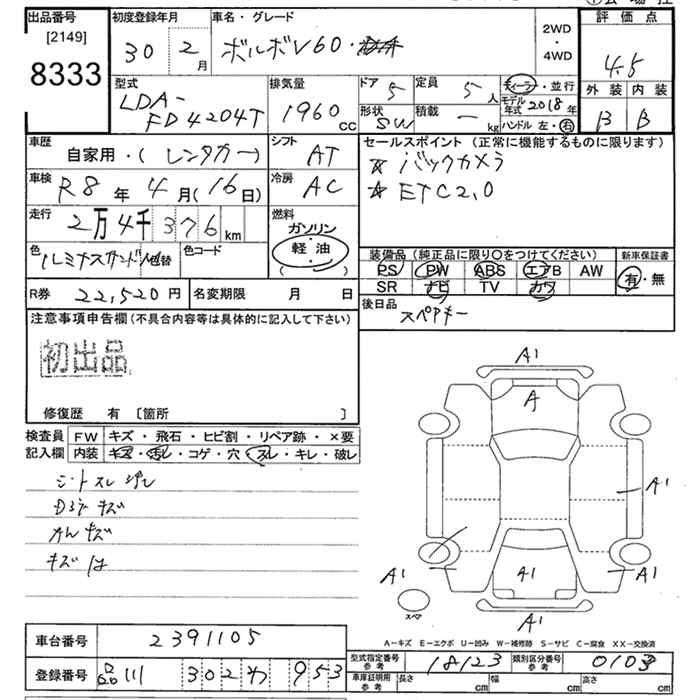 出品番号 [2149] 8333
初度登録年月 30 年 2 月
車名・グレード ボルボV60・
2WD・4WD
評価点 4.5
外装 B 内装 B
型式 LDA-FD4204T
排気量 1960 CC
ドア 5 定員 5 人
形状 SW 積載 ー kg
ディーラー・並行
モデル年式 2018 年
ハンドル 左・右
車歴 自家用・(レンタカー)
シフト AT
セールスポイント (正常に機能するものに限ります)
☆ バックカメラ
☆ ETC2.0
車検 R8 年 4 月 (16 日)
冷房 AC
走行 2万4千376 km
燃料 ガソリン 軽・油
色 ルミナスサンドM 色替
色コード
装備品 (純正品に限り○をつけてください)
PS PW ABS エアB AW
SR ナビ TV カワ
新車保証書 有・無
R券 22,520 円
名変期限 月 日
後日品 スペアキー
注意事項申告欄 (不具合内容等は具体的に記入して下さい)
初出品
修復歴 有 〔箇所 〕
検査員記入欄
FW キズ・飛石・ヒビ割・リペア跡・×要
内装 キズ・汚レ・コゲ・穴・スレ・キレ・破レ
シートスレ
キズ
AWキズ
キズ
A1
A
A1
A1
A1
A1
A1
A1
スペア
A-キズ E-エクボ U-凹み W-補修跡 S-サビ C-腐食 XX-交換済
車台番号 2391105
登録番号 品川 302 わ 953
型式指定番号 参考 18123
類別区分番号 参考 0103
車庫証明用 参考 長さ cm 幅 cm 高さ cm